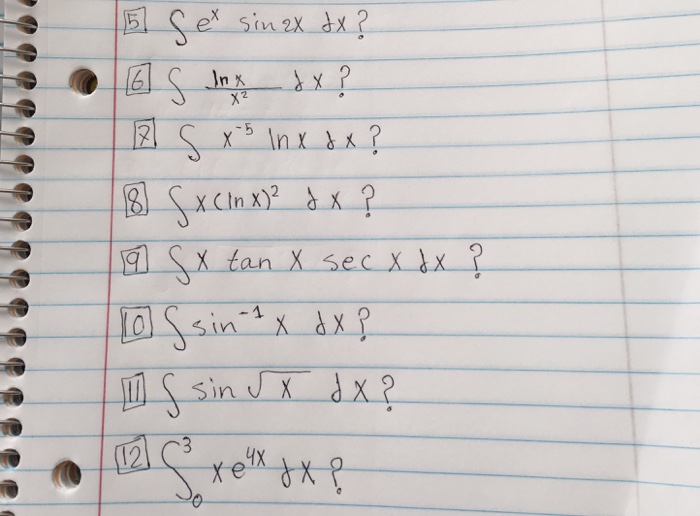 5 ∫ e^x sin 2x dx?
6 ∫ ln x / x^2 dx?
7 ∫ x^-5 ln x dx?
8 ∫ x(ln x)^2 dx?
9 ∫ x tan x sec x dx?
10 ∫ sin^-1 x dx?
11 ∫ sin √x dx?
12 ∫_0^3 xe^4x dx?